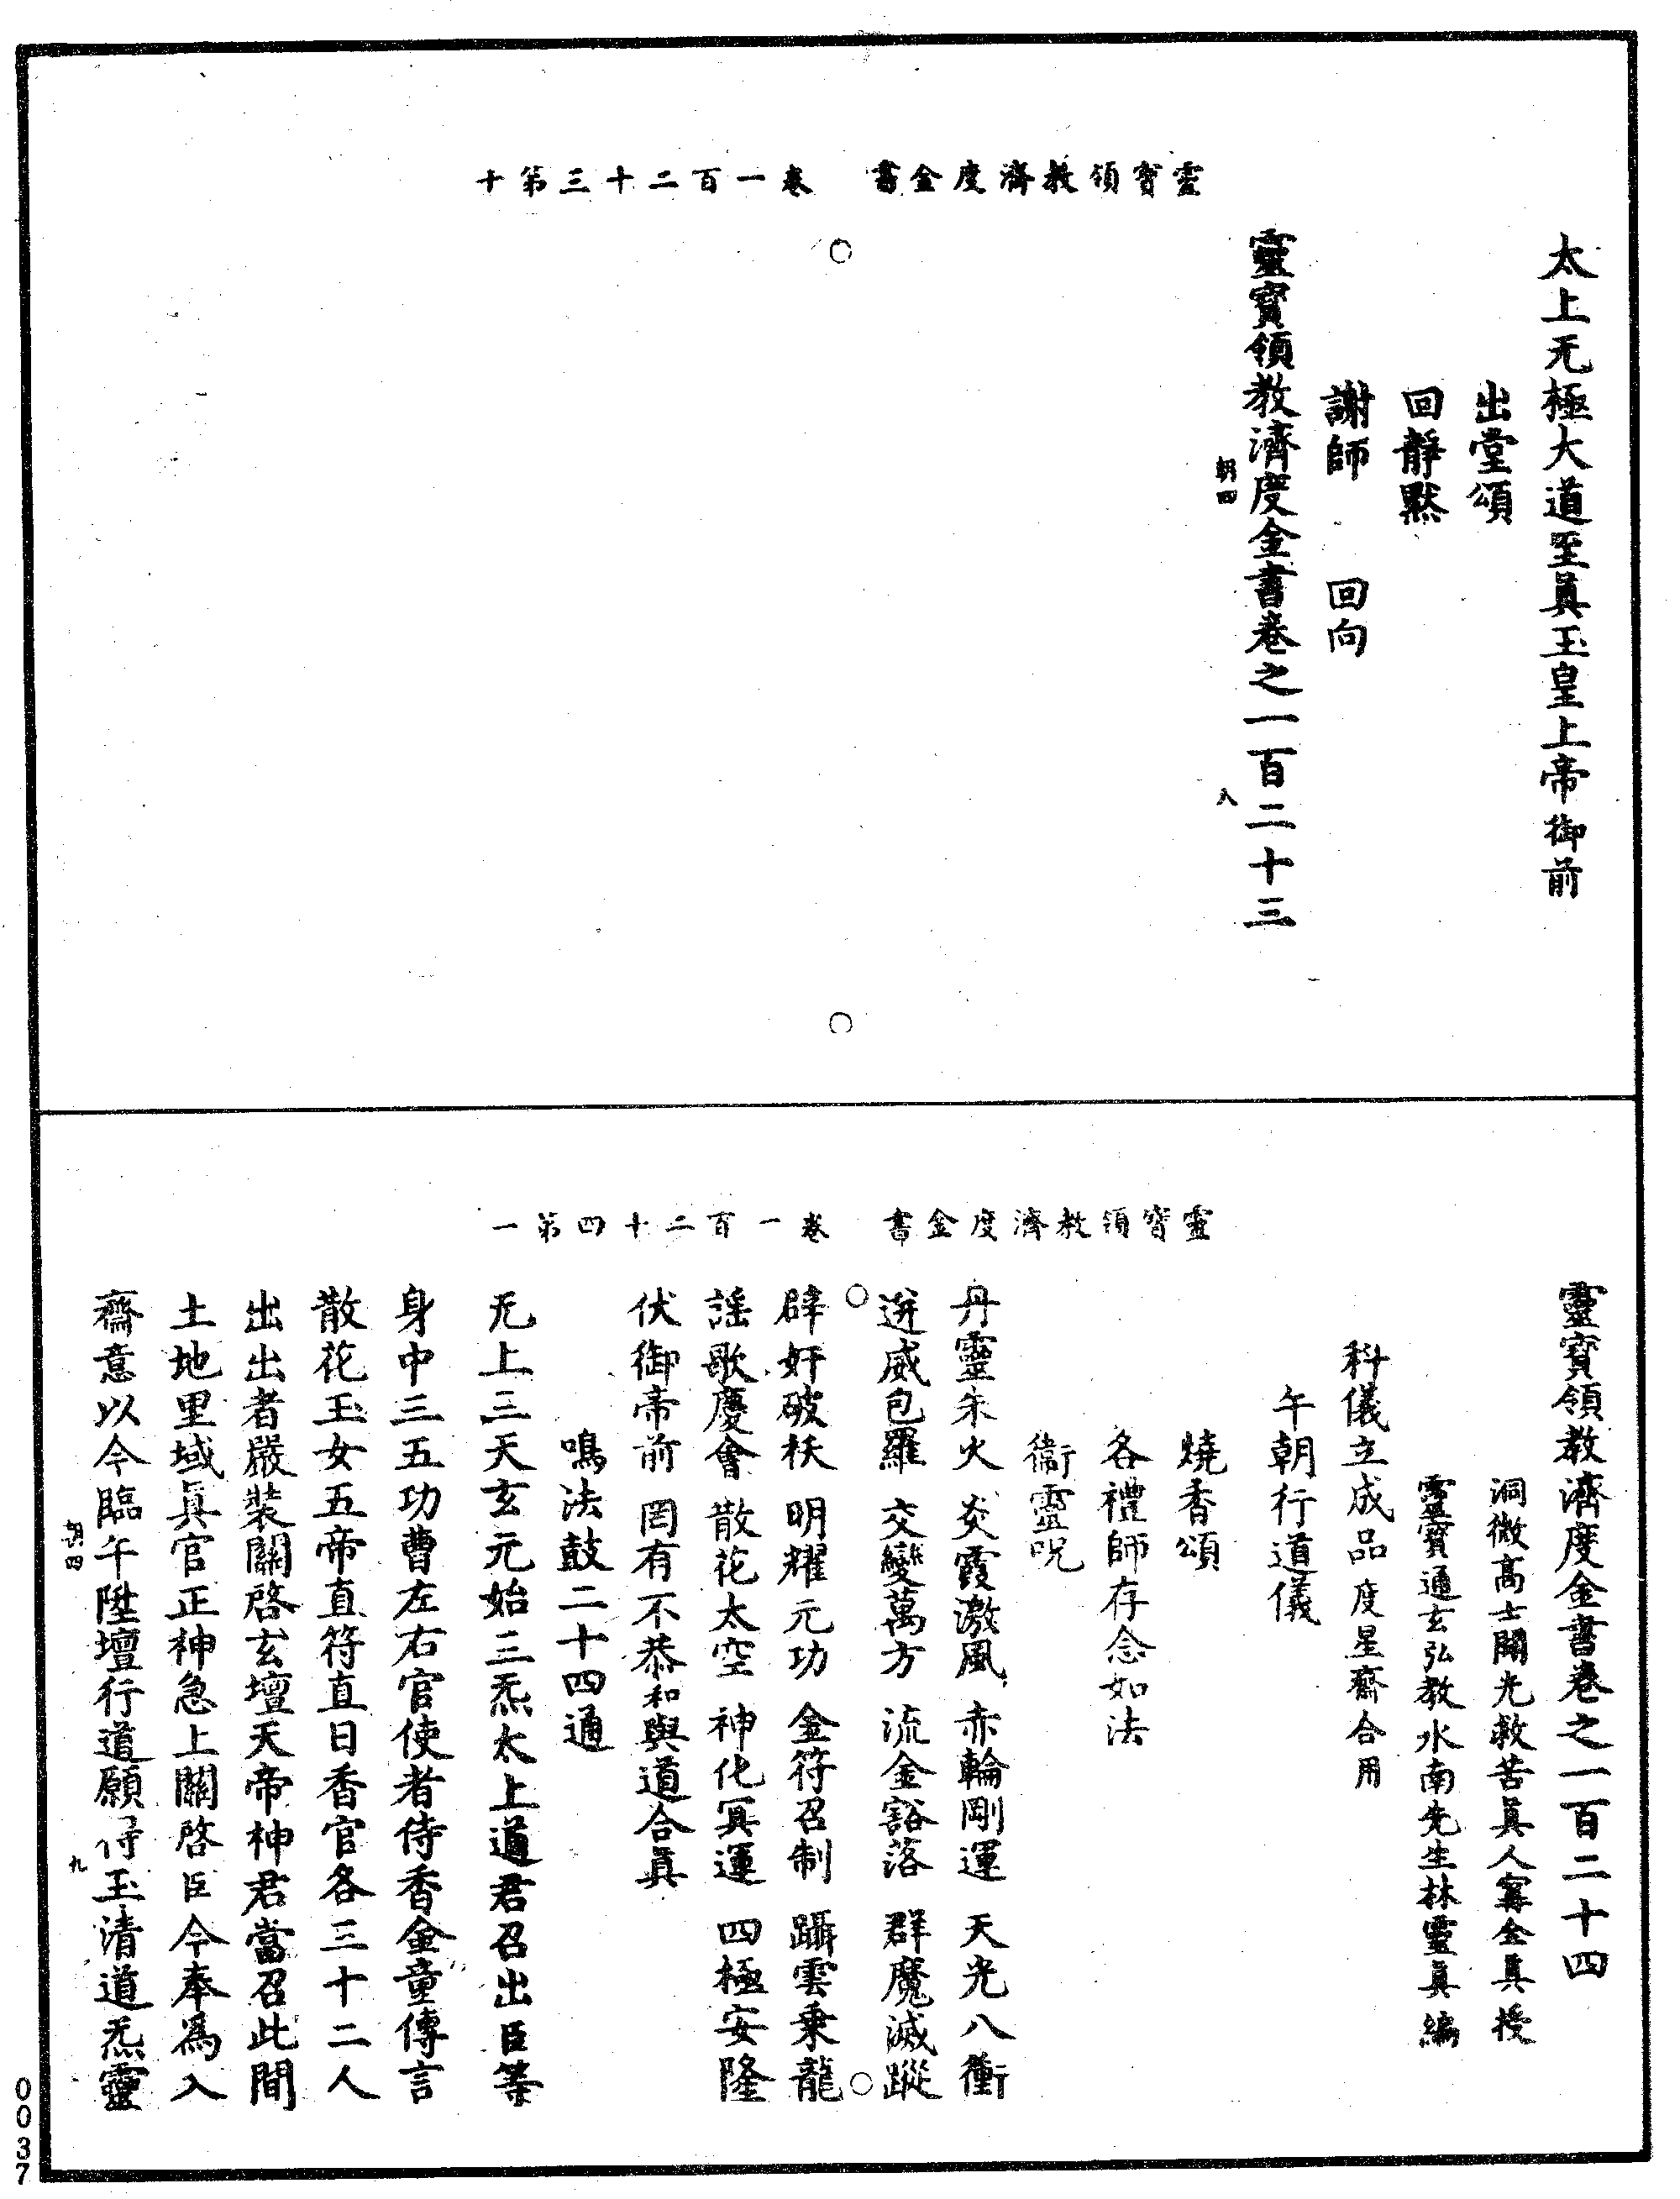 靈寶領教濟度金書　卷一百二十三第十
太上无極大道至眞玉皇上帝御前
出堂頌
回靜默
謝師　回向
靈寶領教濟度金書卷之一百二十三
朝四　八
靈寶領教濟度金書　卷一百二十四第一
靈寶領教濟度金書卷之一百二十四
洞微高士開光救苦眞人甯全眞授
靈寶通玄弘教水南先生林靈眞編
科儀立成品度星齋合用
午朝行道儀
燒香頌
各禮師存念如法
衞靈呪
丹靈朱火　炎霞激風　赤輪剛運　天光八衝
迸威包羅　交變萬方　流金豁落　群魔滅蹤
辟奸破祅　明耀元功　金符召制　躡雲乗龍
謡歌慶會　散花太空　神化冥運　四極安隆
伏御帝前　罔有不恭和與道合眞
鳴法鼓二十四通
无上三天玄元始三炁太上道君召出臣等
身中三五功曹左右官使者侍香金童傳言
散花玉女五帝直符直日香官各三十二人
出出者嚴裝關啓玄壇天帝神君當召此間
土地里域眞官正神急上關啓臣今奉爲入
齋意以今臨午陞壇行道願得玉清道炁靈
朝四　九
0037